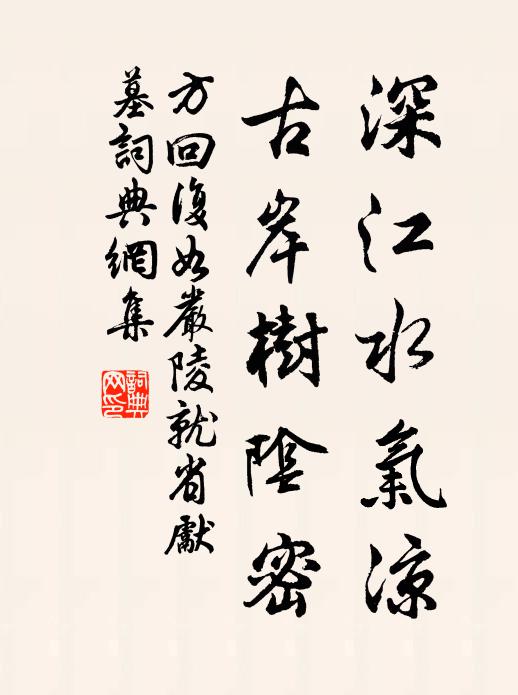 深江水氣涼
古岸樹陰密
方回復如嚴陵就省獻
墓詞典網集
詞典網印